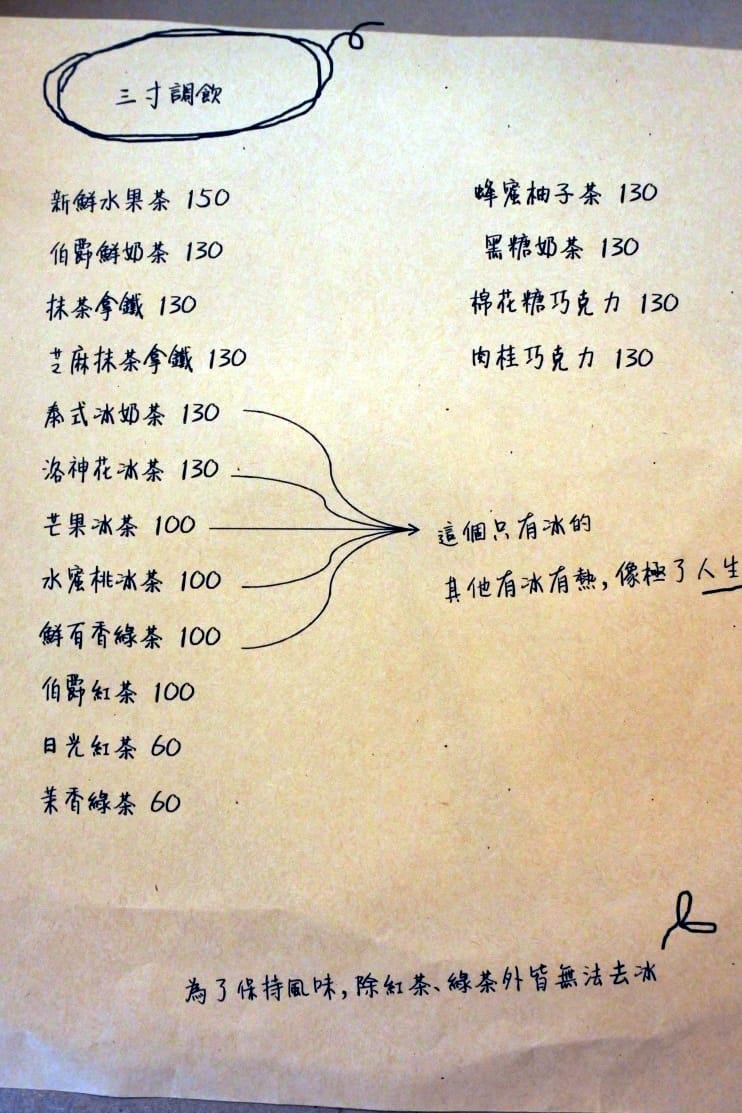 三寸調飲
新鮮水果茶 150
伯爵鮮奶茶 130
抹茶拿鐵 130
芝麻抹茶拿鐵 130
泰式冰奶茶 130
洛神花冰茶 130
芒果冰茶 100
水蜜桃冰茶 100
鮮百香綠茶 100
伯爵紅茶 100
日光紅茶 60
茉香綠茶 60
蜂蜜柚子茶 130
黑糖奶茶 130
棉花糖巧克力 130
肉桂巧克力 130
這個只有冰的
其他有冰有熱,像極了人生
為了保持風味,除紅茶、綠茶外皆無法去冰